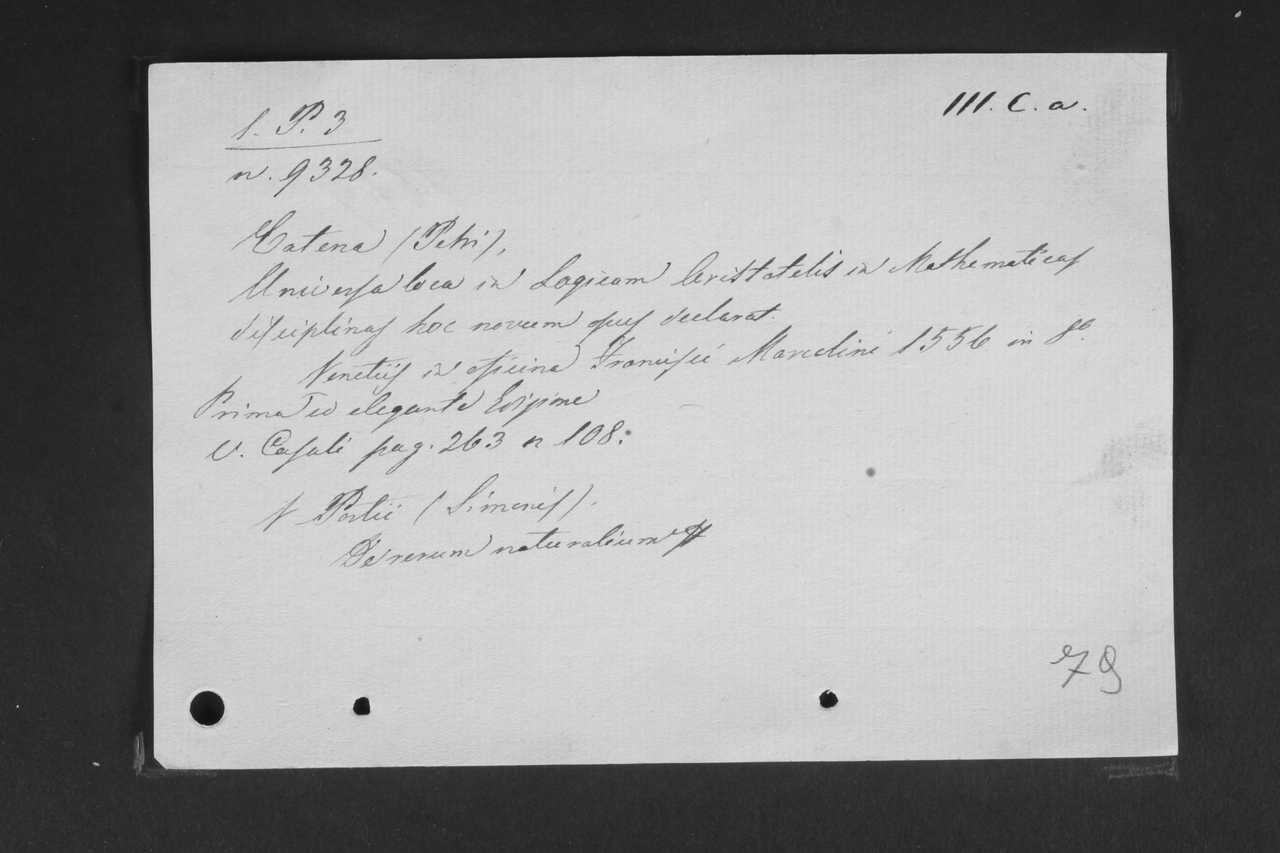 III. C. a.
1. P. 3
n. 9328.
Catena (Petri),
Universa loca in Logicam Aristotelis in Mathematicas
disciplinas hoc novum opus declarat.
Venetiis in officina Francisci Marcolini 1556 in 8º.
Prima ed elegante Edizione
V. Casali pag. 263 n 108.
Portii (Simonis).
De rerum naturalium
79